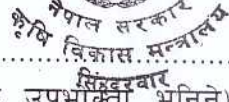 नेपाल सरकार
कृषि विकास मन्त्रालय
सिंहदरवार
उपभोक्ता भनिने)